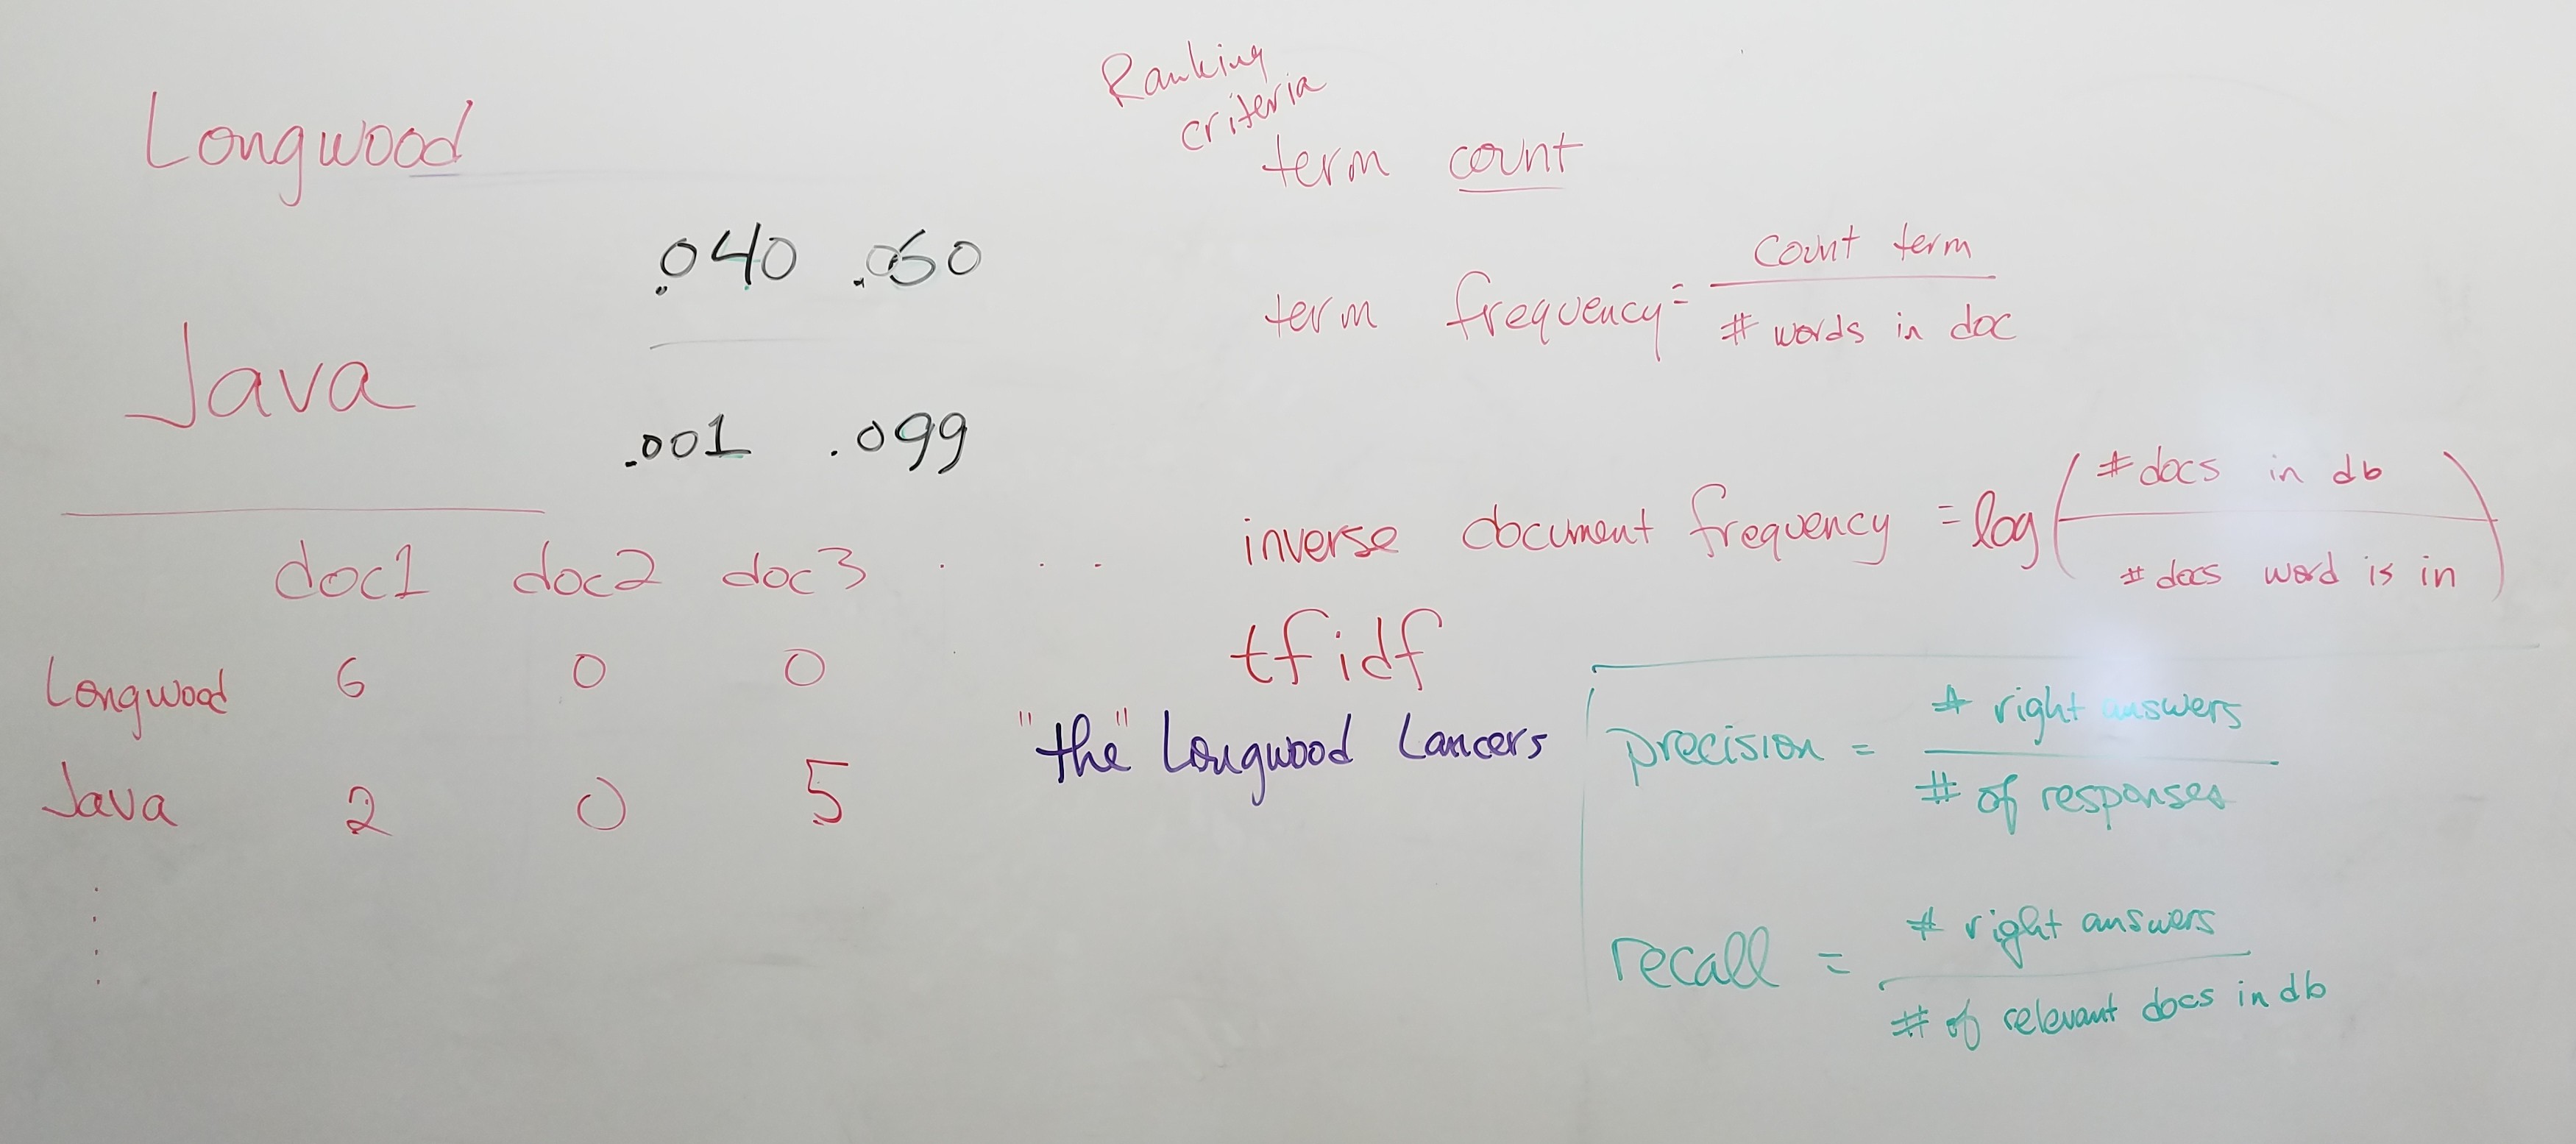 Longwood
.040 .060
Java
.001 .099
doc1 doc2 doc3 . . .
Longwood 6 0 0
Java 2 0 5
Ranking
criteria
term count
term frequency = count term / # words in doc
inverse document frequency = log ( # docs in db / # docs word is in )
tfidf
"the" Longwood Lancers
precision = # right answers / # of responses
recall = # right answers / # of relevant docs in db